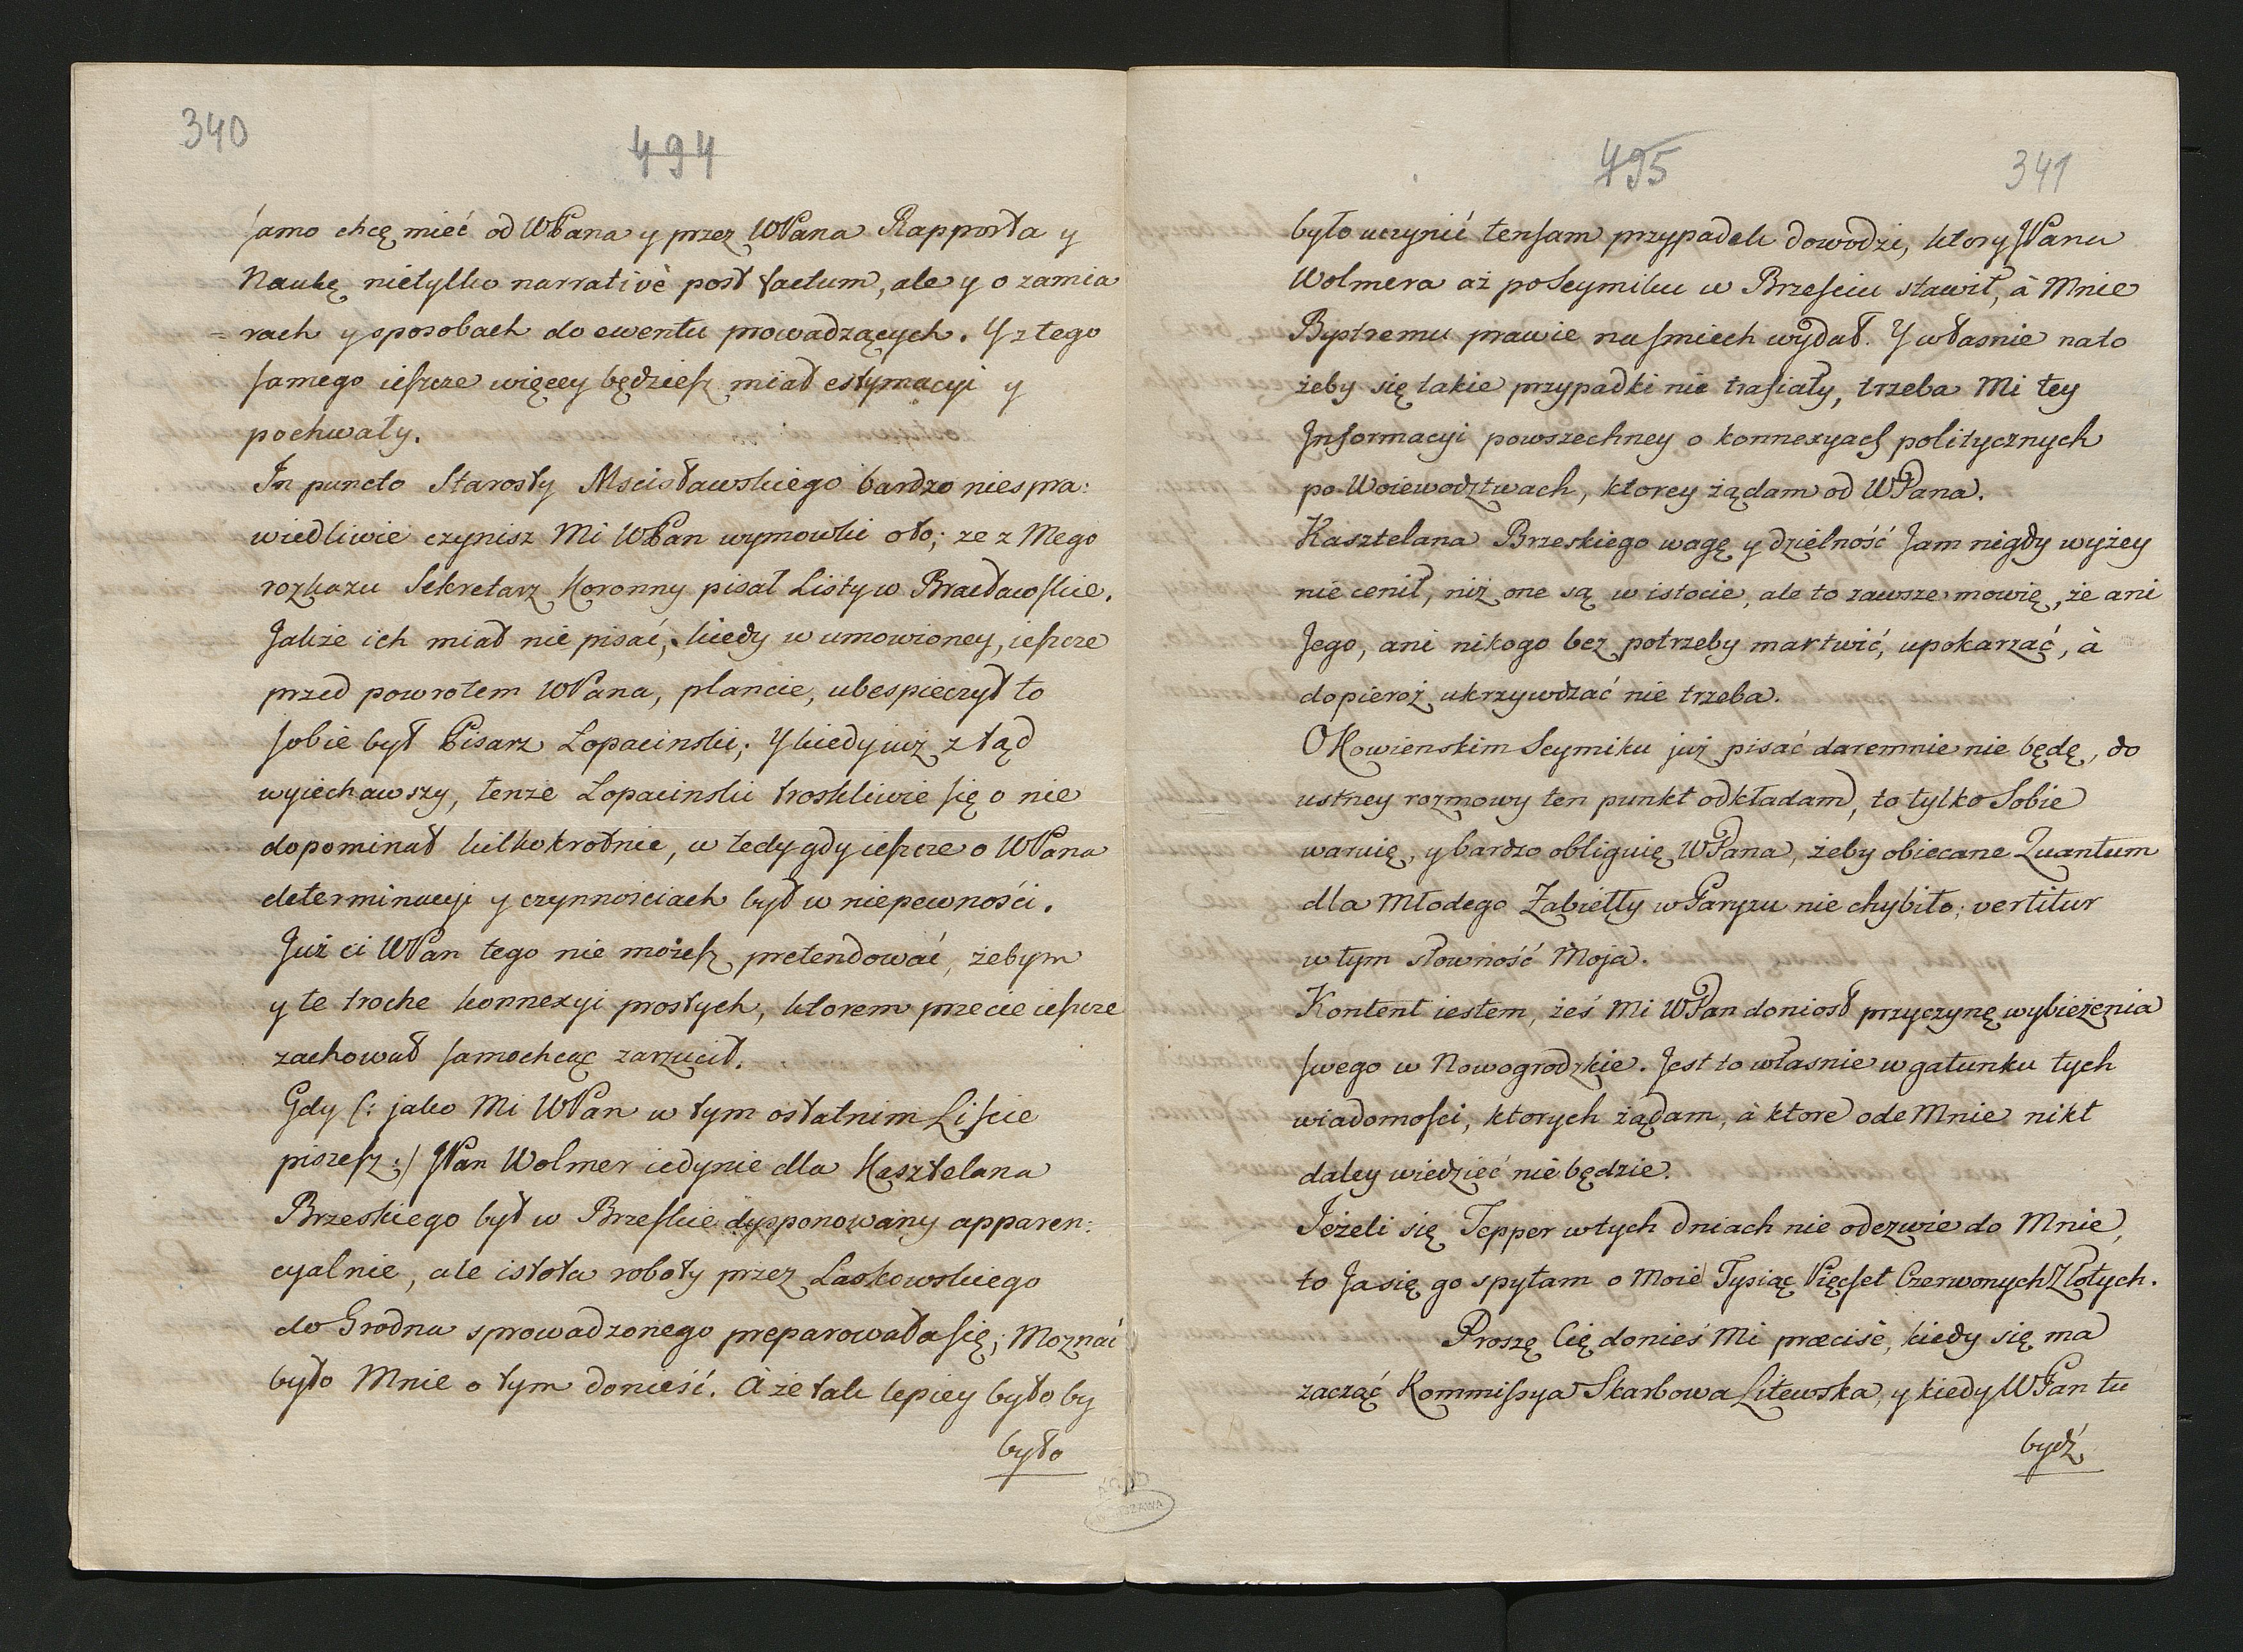 340
494
samo chcę mieć od WPana y przez WPana Rapporta y
Naukę nietylko narrativè post factum, ale y o zamia
=rach y sposobach do ewentu prowadzących. Y z tego
samego ieszcze więcey będziesz miał estymacyi y
pochwały.
In puncto Starosty Mscisławskiego bardzo niespra:
wiedliwie czynisz Mi WPan wymowki oto; ze z Mego
rozkazu Sekretarz Koronny pisał Listy w Bracławskie.
Jakże ich miał nie pisać, kiedy w umowioney, ieszcze
przed powrotem WPana, plancie, ubespieczył to
sobie był Pisarz Łopacinski; Y kiedy iuż z tąd
wyiechawszy, tenże Łopacinski troskliwie się o nie
dopominał kilkokrotnie, w tedy gdy ieszcze o WPana
determinacyi y czynnościach był w niepewności.
Już ci WPan tego nie możesz pretendować, żebym
y te troche konnexyi prostych, ktorem przecie ieszcze
zachował samochcąc zarzucił.
Gdy (: jako Mi WPan w tym ostatnim Liscie
piszesz :) JPan Wolmer iedynie dla Kasztelana
Brzeskiego był w Brzeskie dysponowany apparen:
cyalnie, ale istota roboty przez Laskowskiego
do Grodna sprowadzonego preparowała się; Moznać
było Mnie o tym donieść. A że tak lepiey było by
było
495
341
było uczynić tensam przypadek dowodzi, ktory JPana
Wolmera aż po Seymiku w Brześciu stawił, à Mnie
Bystremu prawie na smiech wydał. Y własnie nato
żeby się takie przypadki nie trafiały, trzeba Mi tey
Informacyi powszechney o konnexyach politycznych
po Woiewodztwach, ktorey żądam od WPana.
Kasztelana Brzeskiego wagę y dzielność Jam nigdy wyżey
nie cenił, niż one są w istocie, ale to zawsze mowię, że ani
Jego, ani nikogo bez potrzeby martwić, upokarzać, à
dopieroż ukrzywdzać nie trzeba.
O Kowienskim Seymiku już pisać daremnie nie będę, do
ustney rozmowy ten punkt odkładam, to tylko Sobie
waruię, y bardzo obliguię WPana, żeby obiecane Quantum
dla Młodego Zabiełły w Paryzu nie chybiło; vertitur
w tym słowność Moja.
Kontent iestem, żeś Mi WPan doniosł przyczynę wybieżenia
swego w Nowogrodzkie. Jest to własnie w gatunku tych
wiadomosci, ktorych żądam, à ktore ode Mnie nikt
daley wiedzieć nie będzie.
Jeżeli się Tepper w tych dniach nie odezwie do Mnie,
to Ja się go spytam o Moie Tysiąc Pięcset Czerwonych Złotych.
Proszę Cię donieś Mi præcisè, kiedy się ma
zacząć Kommissya Skarbowa Litewska, y kiedy WPan tu
bydź
WARSZAWA